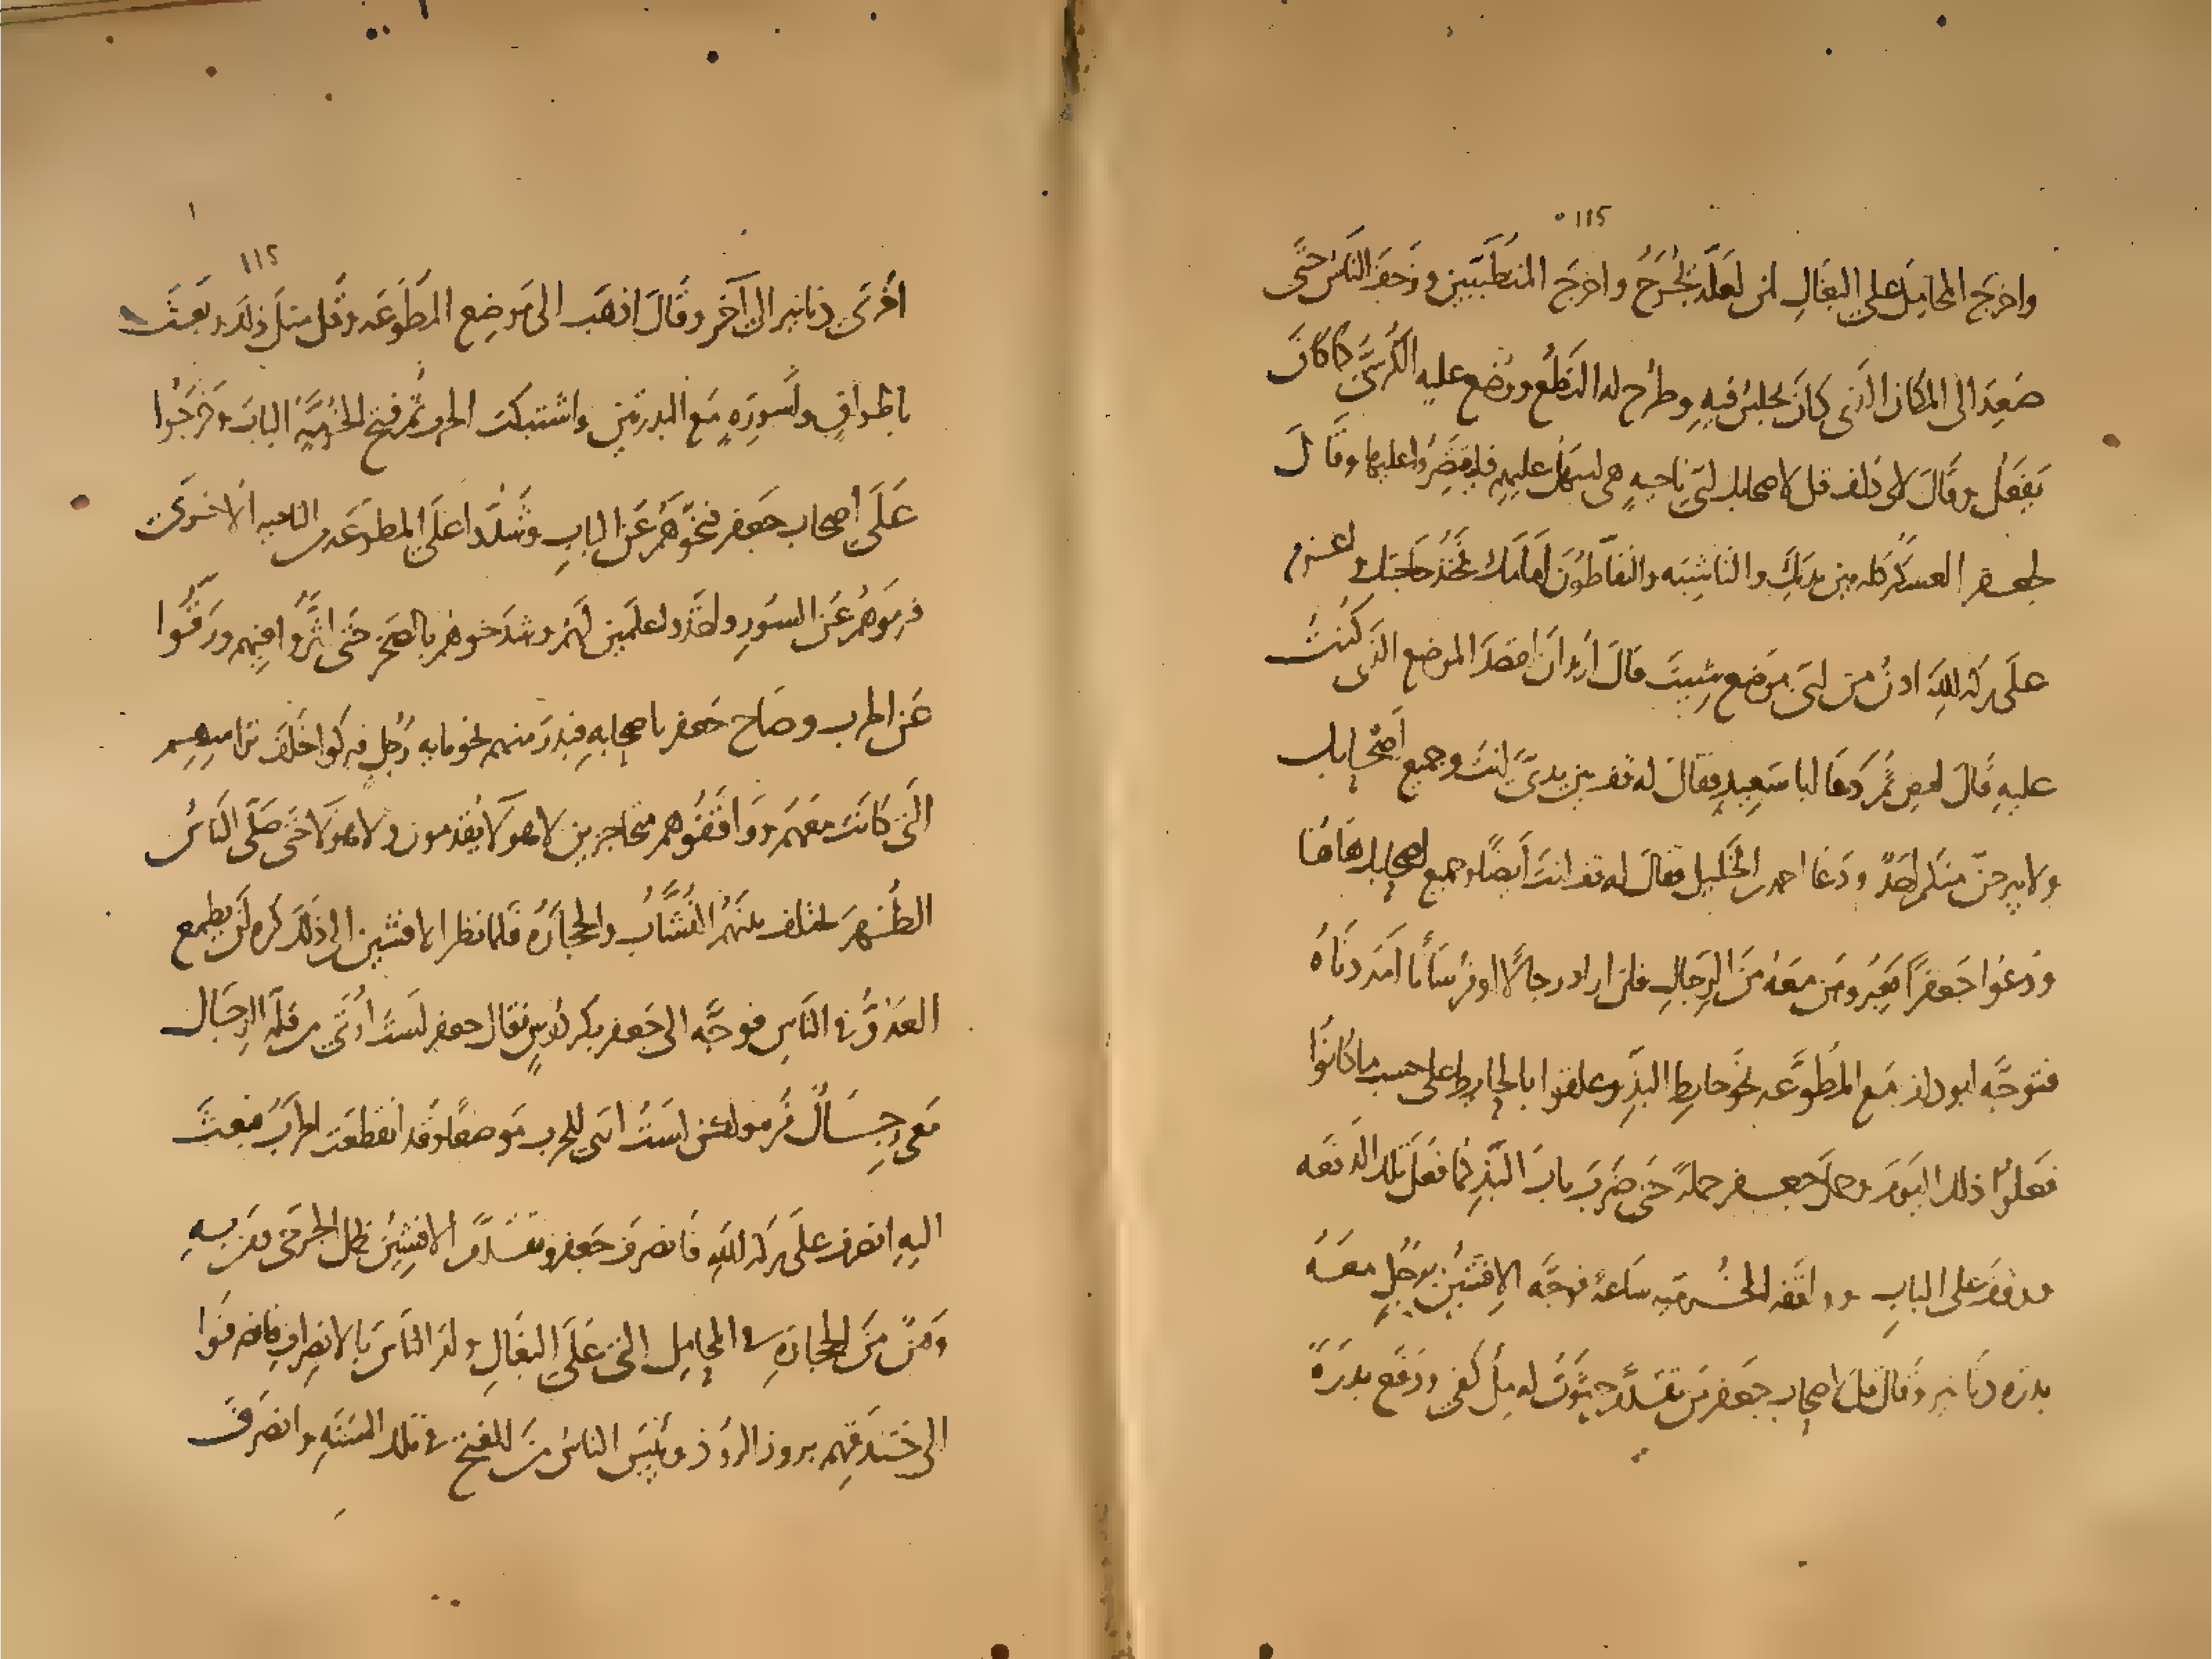 115
واخرج المحامل على البغال لمن لعله يُجرَحُ واخرج المتطببين وزحف الناس حتى
صَعِدَ الى المكان الذى كان يجلس فيه وطُرح له النطع ووُضع عليه الكرسىّ كما كانَ
يَفعَلُ وقالَ لابى دلف قل لاصحابك اىّ ناحيهٍ هى اسهل عليهم فليقتصروا عليها وقالَ
لجعفر العسكر كله بين يديك والناشبه والنفاطون امامك فخُذ حاجتك واعزم
على بركه الله ادن من اىّ موضع شِيتَ قالَ اريد ان اقصد الموضع الذى كُنتُ
عليه قالَ امضِ ثمّ دعَا ابا سَعِيدٍ فقالَ له قف بين يدىّ انت وجميع اصحابك
ولا يبرحنّ منكم احدٌ ودَعَا احمد بن الخليل فقالَ له قف انتَ ايضًا وجميع اصحابك هاهُنا
ودعوا جَعفرًا يَعبُرُ ومَن معَه منَ الرجالِ فان اراد رجالًا او فرسانًا امدَدناهُ
فتوجَّه ابو دلف مَع المُطَوَّعه نحوَ حايطِ البذّ وعلقوا بالحايط على حسب ما كانُوا
فعَلوا ذلك اليَومَ وحمل جعفر حملةً حتى ضَربَ بابَ البَذِّ كما فعَل تلك الدفعَه
ووقفَ على البابِ وواقفه الخُرَّميّه ساعةً فوجَّه الافشينُ برجُلٍ معَهُ
بدره دنانير وقال قل لاصحاب جعفر مَن تقدّمَ حثَوتُ له مِلءَ كفى ودَفعَ بدرَةً
115
اخرَى دنانير الى آخَر وقالَ اذهَب الى موضِع المطَّوّعه وقُل مثلَ ذلك وبَعَثَ
باطواقٍ واسورهٍ مَع البدرتينِ واشتبكت الحرب ثم فتح الخُرّميَّةُ البابَ وخَرَجُوا
عَلَى اصحاب جَعفر فنحّوهُم عَن البابِ وشدّوا على المطوّعَه من الناحيه الاخرَى
فرمَوهُم عَن السّورِ واخذُوا علَمين لهُم وشدَخوهُم بالصّخرِ حتى اثّروا فيهم ورَقُّوا
عَن الحرب وصَاح جَعفر باصحابهِ فبدَر منهم نحو مايه رَجُلٍ فبركوا خلفَ تراسهِم
الّتى كانت معَهُم وواقفُوهم متحاجزينَ لا هولا يُقدمون ولا هولا حتى صَلّى النّاسُ
الظُّهرَ تختلف بينَهُم النُشّابُ والحجارَهُ فلما نظر الافشين الى ذلك كره ان يطمع
العدُوُّ فى النّاسِ فوجَّه الى جَعفر بكردُوسٍ فقال جعفر لستُ اُوتَى من قلّه الرجَال
مَعى رِجالٌ فُرهٌ ولكن لستُ ارَى للحرب مَوضعًا وقد انقطعَت الحربُ فبعثَ
اليهِ انصرف على بركه الله فانصرفَ جعفر وتقدّمَ الافشينُ بحمل الجرحَى ومَن بهِ
وَهنٌ مِنَ الحجارَهِ فى المحامِل التى علَى البغالِ واذِنَ للناسِ بالانصِرافِ فانصرفوا
الى خندَقِهم بروذ الروذ ويَئِسَ الناسُ مِنَ الفتح فى تلك السّنهِ وانصَرفَ